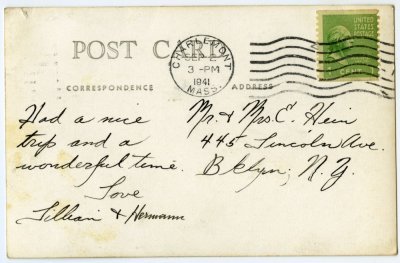 POST CARD
CHARLEMONT
SEP 2
3 - PM
1941
MASS.
UNITED
STATES
POSTAGE
CORRESPONDENCE
ADDRESS
Had a nice
trip and a
wonderful time.
Love
Lillian & Hermann
Mr. & Mrs. E. Hein
445 Lincoln Ave.
Bklyn, N. Y.